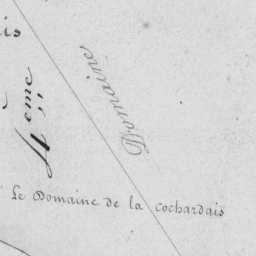 is
4eme
Domaine
Le Domaine de la Cochardais